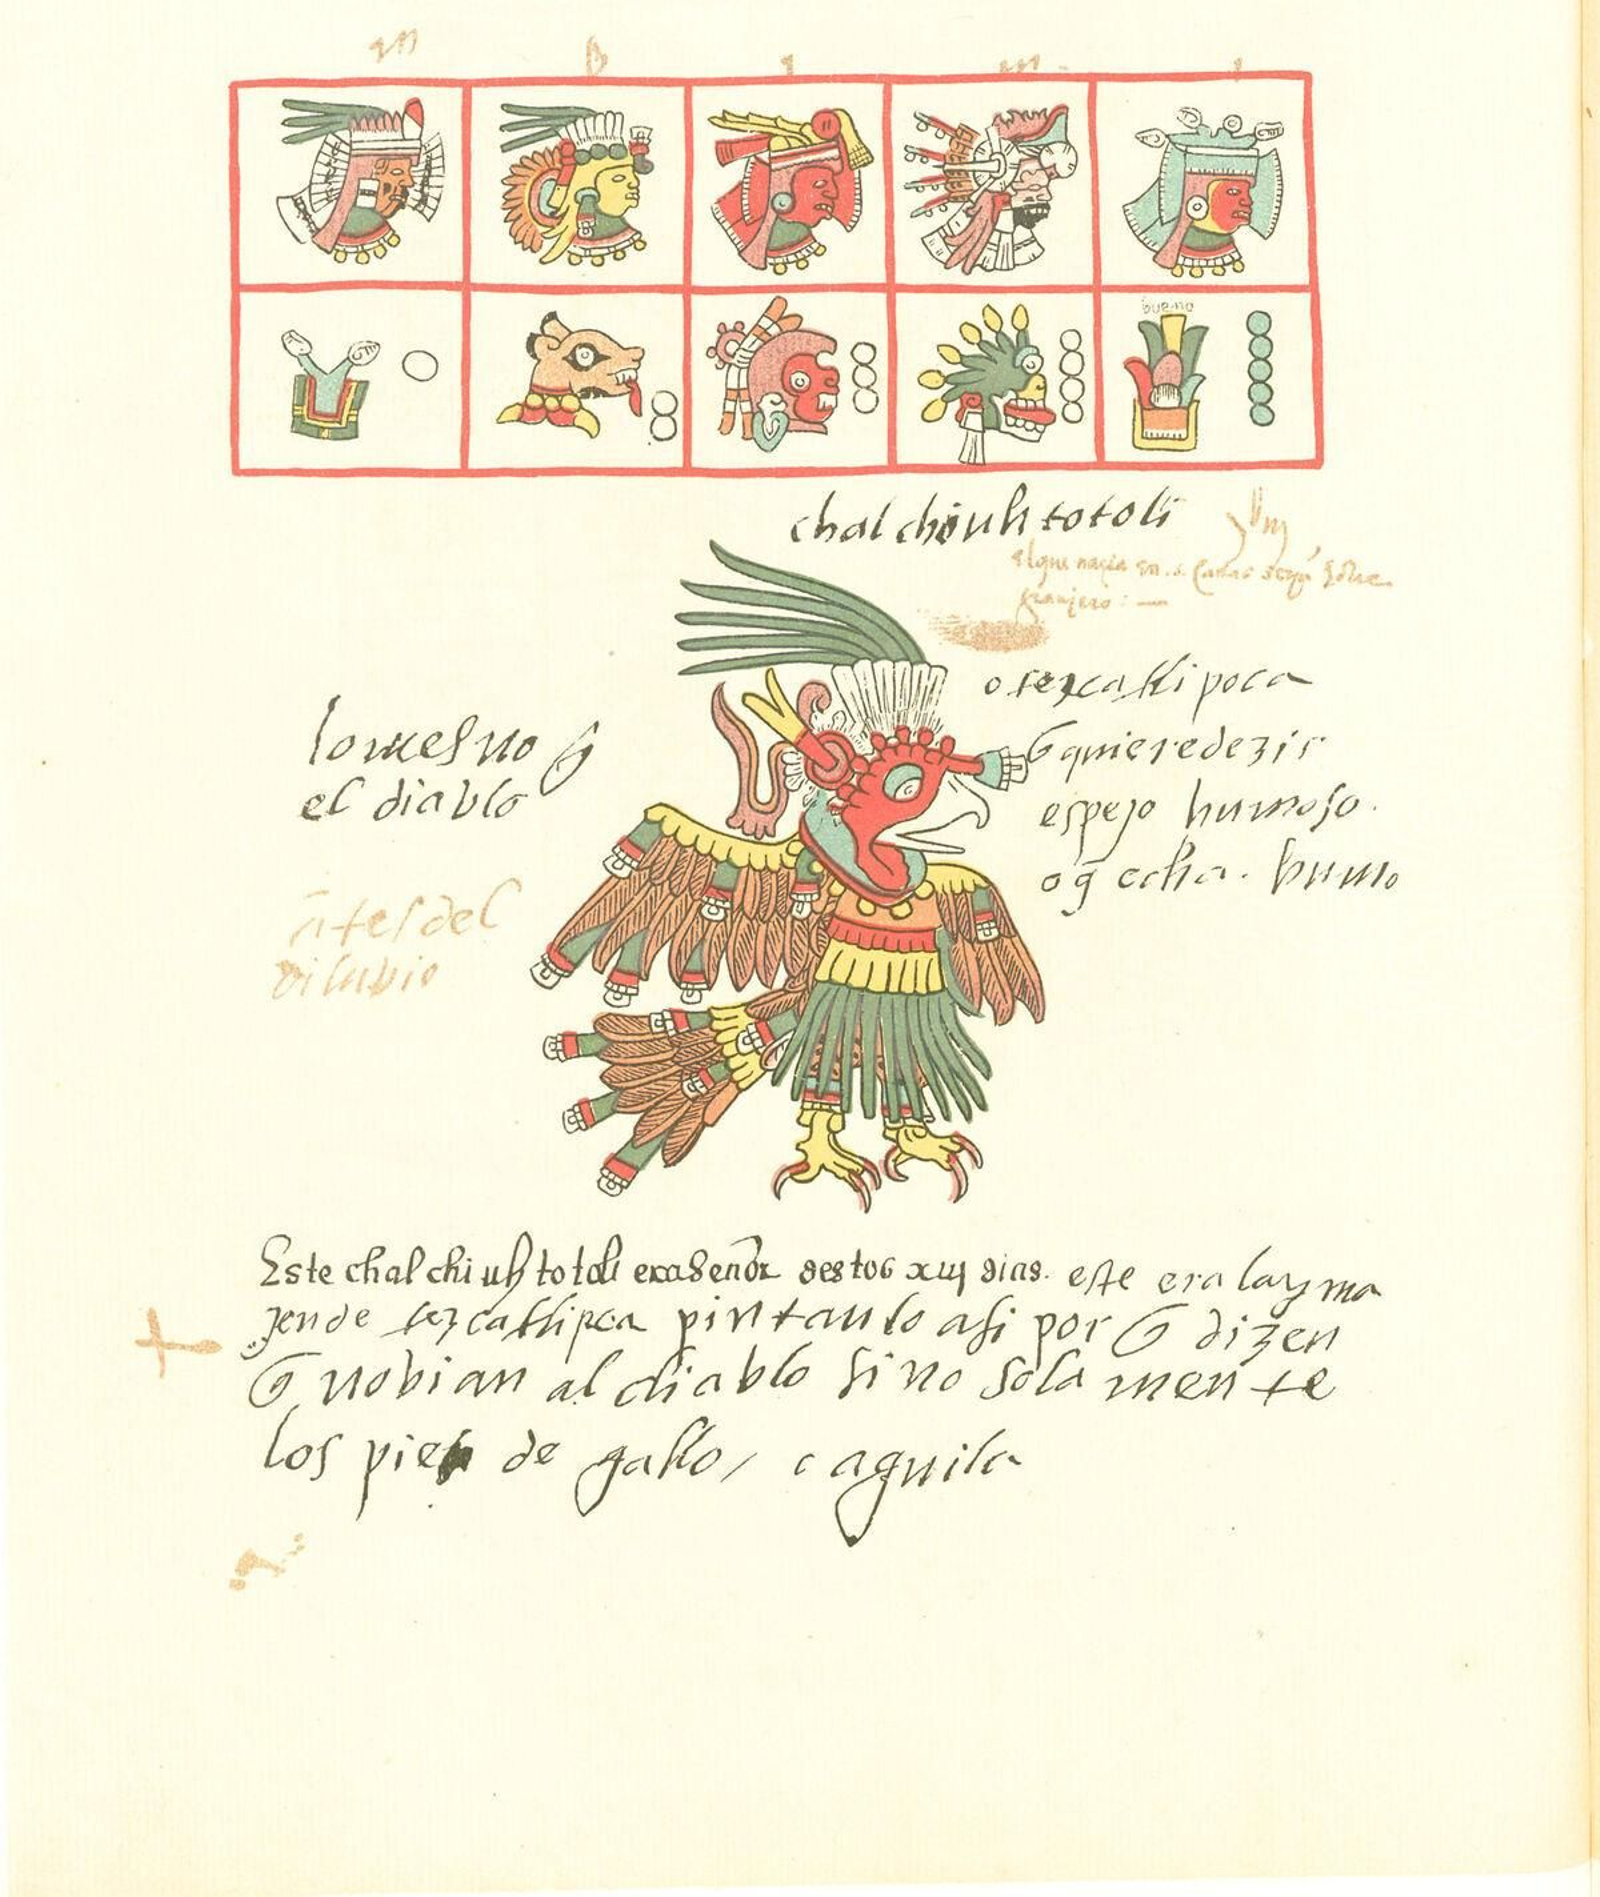 m
b
i
m
i
bueno
chalchiuhtotoli
elque nacia en
o tezcatlipoca
q̃ quiere dezir
espejo humoso.
o q̃ echa. humo
lo mesmo q̃
el diablo
ãtes del
dilubio
Este chalchiuhtotoli era Señor destos xiij dias. este era la yma
jen de tezcatlipca pintanlo asi por q̃ dizen
q̃ no bian al diablo sino sola mente
los pies de gallo, o aguila